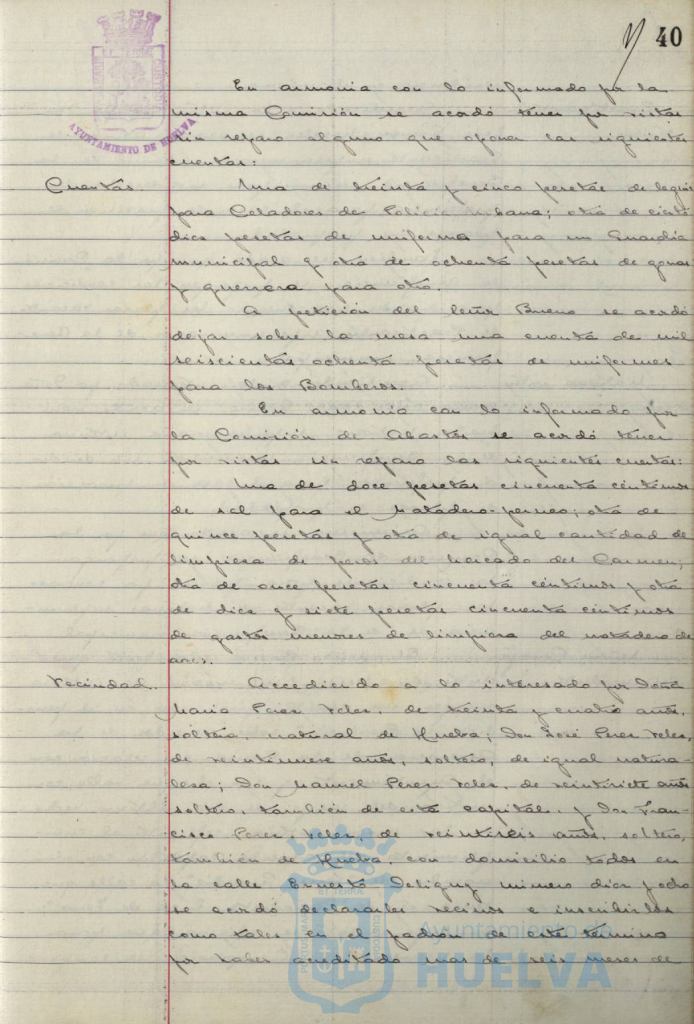 40
AYUNTAMIENTO DE HUELVA
En armonia con lo informado por la
misma Comisión se acordó tener por vistas
sin reparo alguno que oponer las siguientes
cuentas:
Cuentas.
Una de treinta y cinco pesetas de leguis
para Celadores de Policia Urbana; otra de ciento
diez pesetas de uniforme para un Guardia
municipal y otra de ochenta pesetas de gorra
y guerrera para otro.
A petición del Señor Bueno se acordó
dejar sobre la mesa una cuenta de mil
seiscientas ochenta pesetas de uniformes
para los Bomberos.
En armonia con lo informado por
la Comisión de Abastos se acordó tener
por vistas sin reparo las siguientes cuentas:
Una de doce pesetas cincuenta céntimos
de sal para el Matadero; otra de
quince pesetas y otra de igual cantidad de
limpieza de pozos del Mercado del Carmen;
otra de once pesetas cincuenta céntimos y otra
de diez y siete pesetas cincuenta céntimos
de gastos menores de limpieza del matadero de
aves.
Vecindad.
Accediendo a lo interesado por Doña
Maria Perez Velez, de treinta y cuatro años,
soltera, natural de Huelva; Don José Perez Velez,
de veintinueve años, soltero, de igual natura-
leza; Don Manuel Perez Velez, de veintisiete años
soltero, también de esta capital, y Don Fran-
cisco Perez Velez, de veintiseis años, soltero,
también de Huelva, con domicilio todos en
la calle Ernesto Deligny número diez y ocho
se acordó declararles vecinos e inscribirlos
como tales en el padrón de este término
por haber acreditado mas de seis meses de
Ayuntamiento de
HUELVA